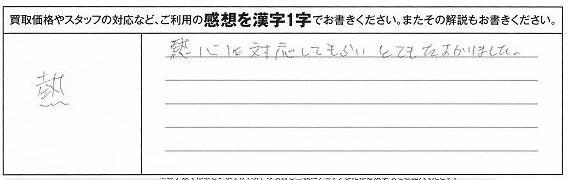 買取価格やスタッフの対応など、ご利用の感想を漢字1字でお書きください。またその解説もお書きください。
熱
熱心に対応してもらい とてもたすかりました。